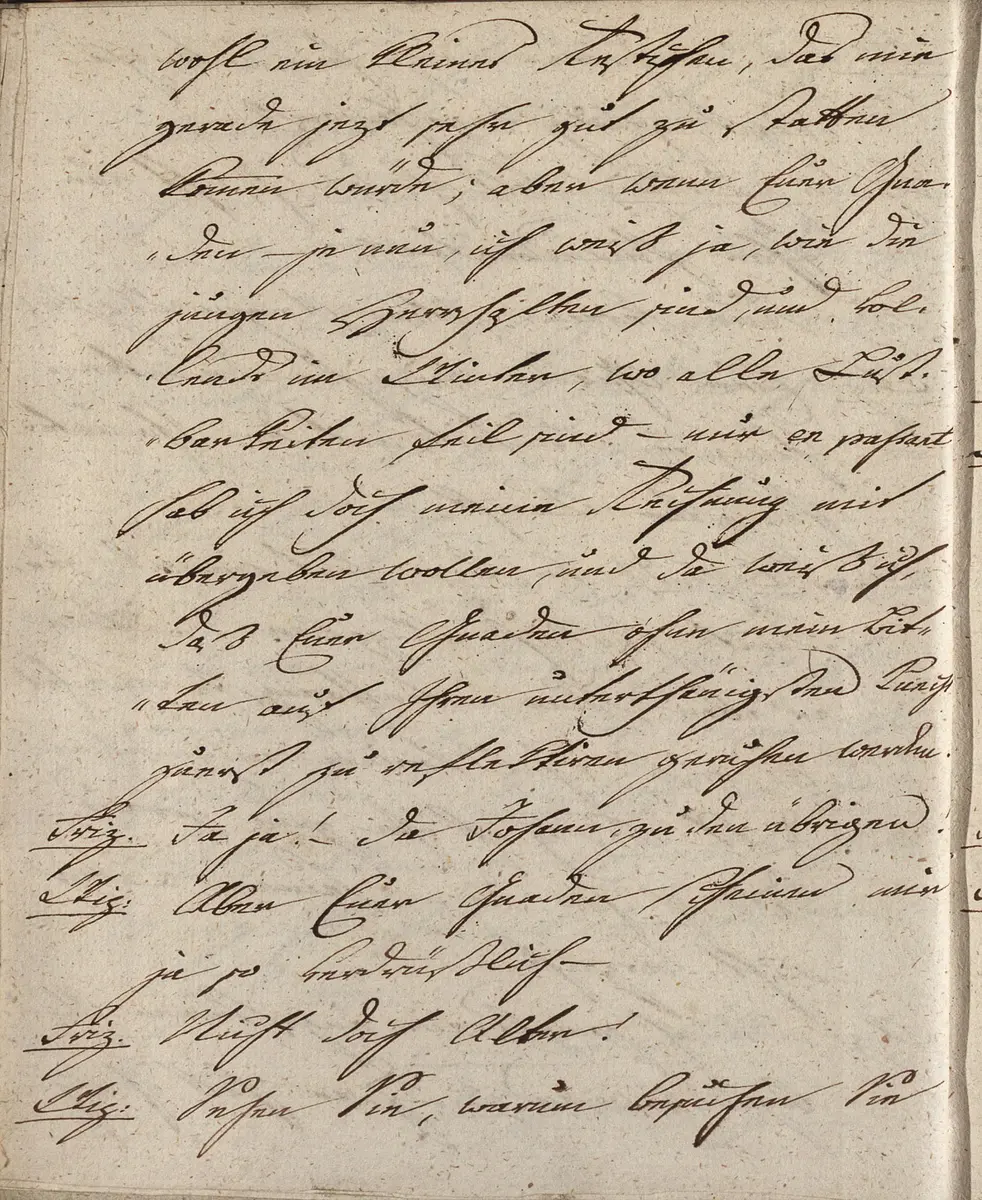 wohl ein kleines Restchen, das mir
gerade jezt sehr gut zu statten
komen würde; aber wenn Euer Gna-
„den – je nun, ich weiß ja, wie die
jungen Herrschaften sind, und vol-
„lends im Winter, wo alle Lust-
„barkeiten feil sind – nur en passant
hab ich doch meine Rechnung mit
übergeben wollen, und da weiß ich,
daß Euer Gnaden ohne mein Bit-
„ten auf Ihren unterthänigsten Knecht
zuerst zu reflektiren geruhen werden.
Friz. Ja ja! – da Johann, zu den übrigen!
Wiz: Aber Euer Gnaden scheinen mir
ja so verdrüßlich –
Friz. Nicht doch Alter!
Wiz: Sehen Sie, warum besuchen Sie